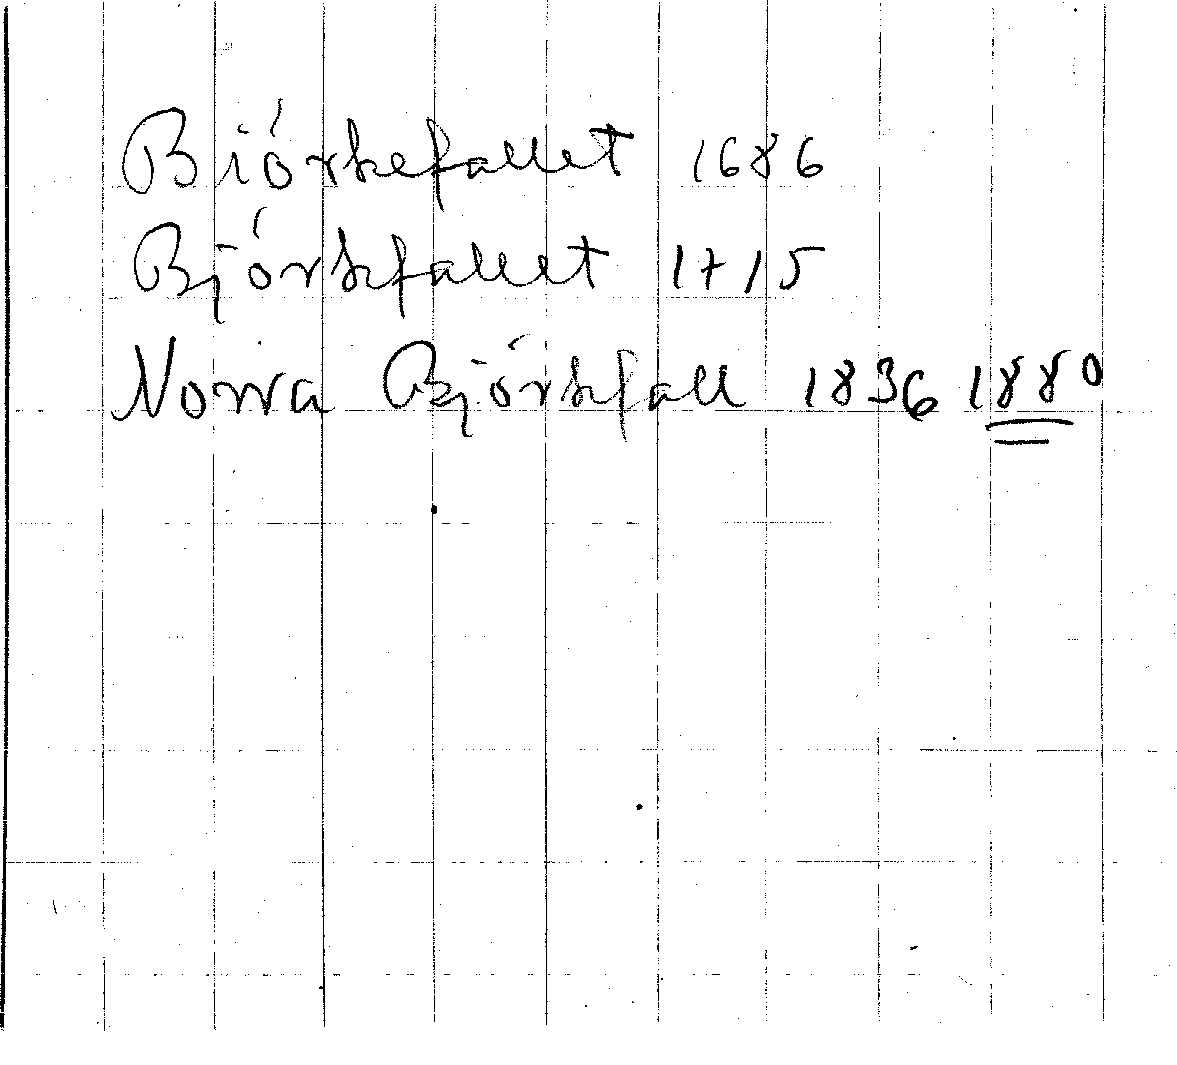 Biörkefallet 1686
Björkfallet 1715
Norra Björkfall 1836 1880